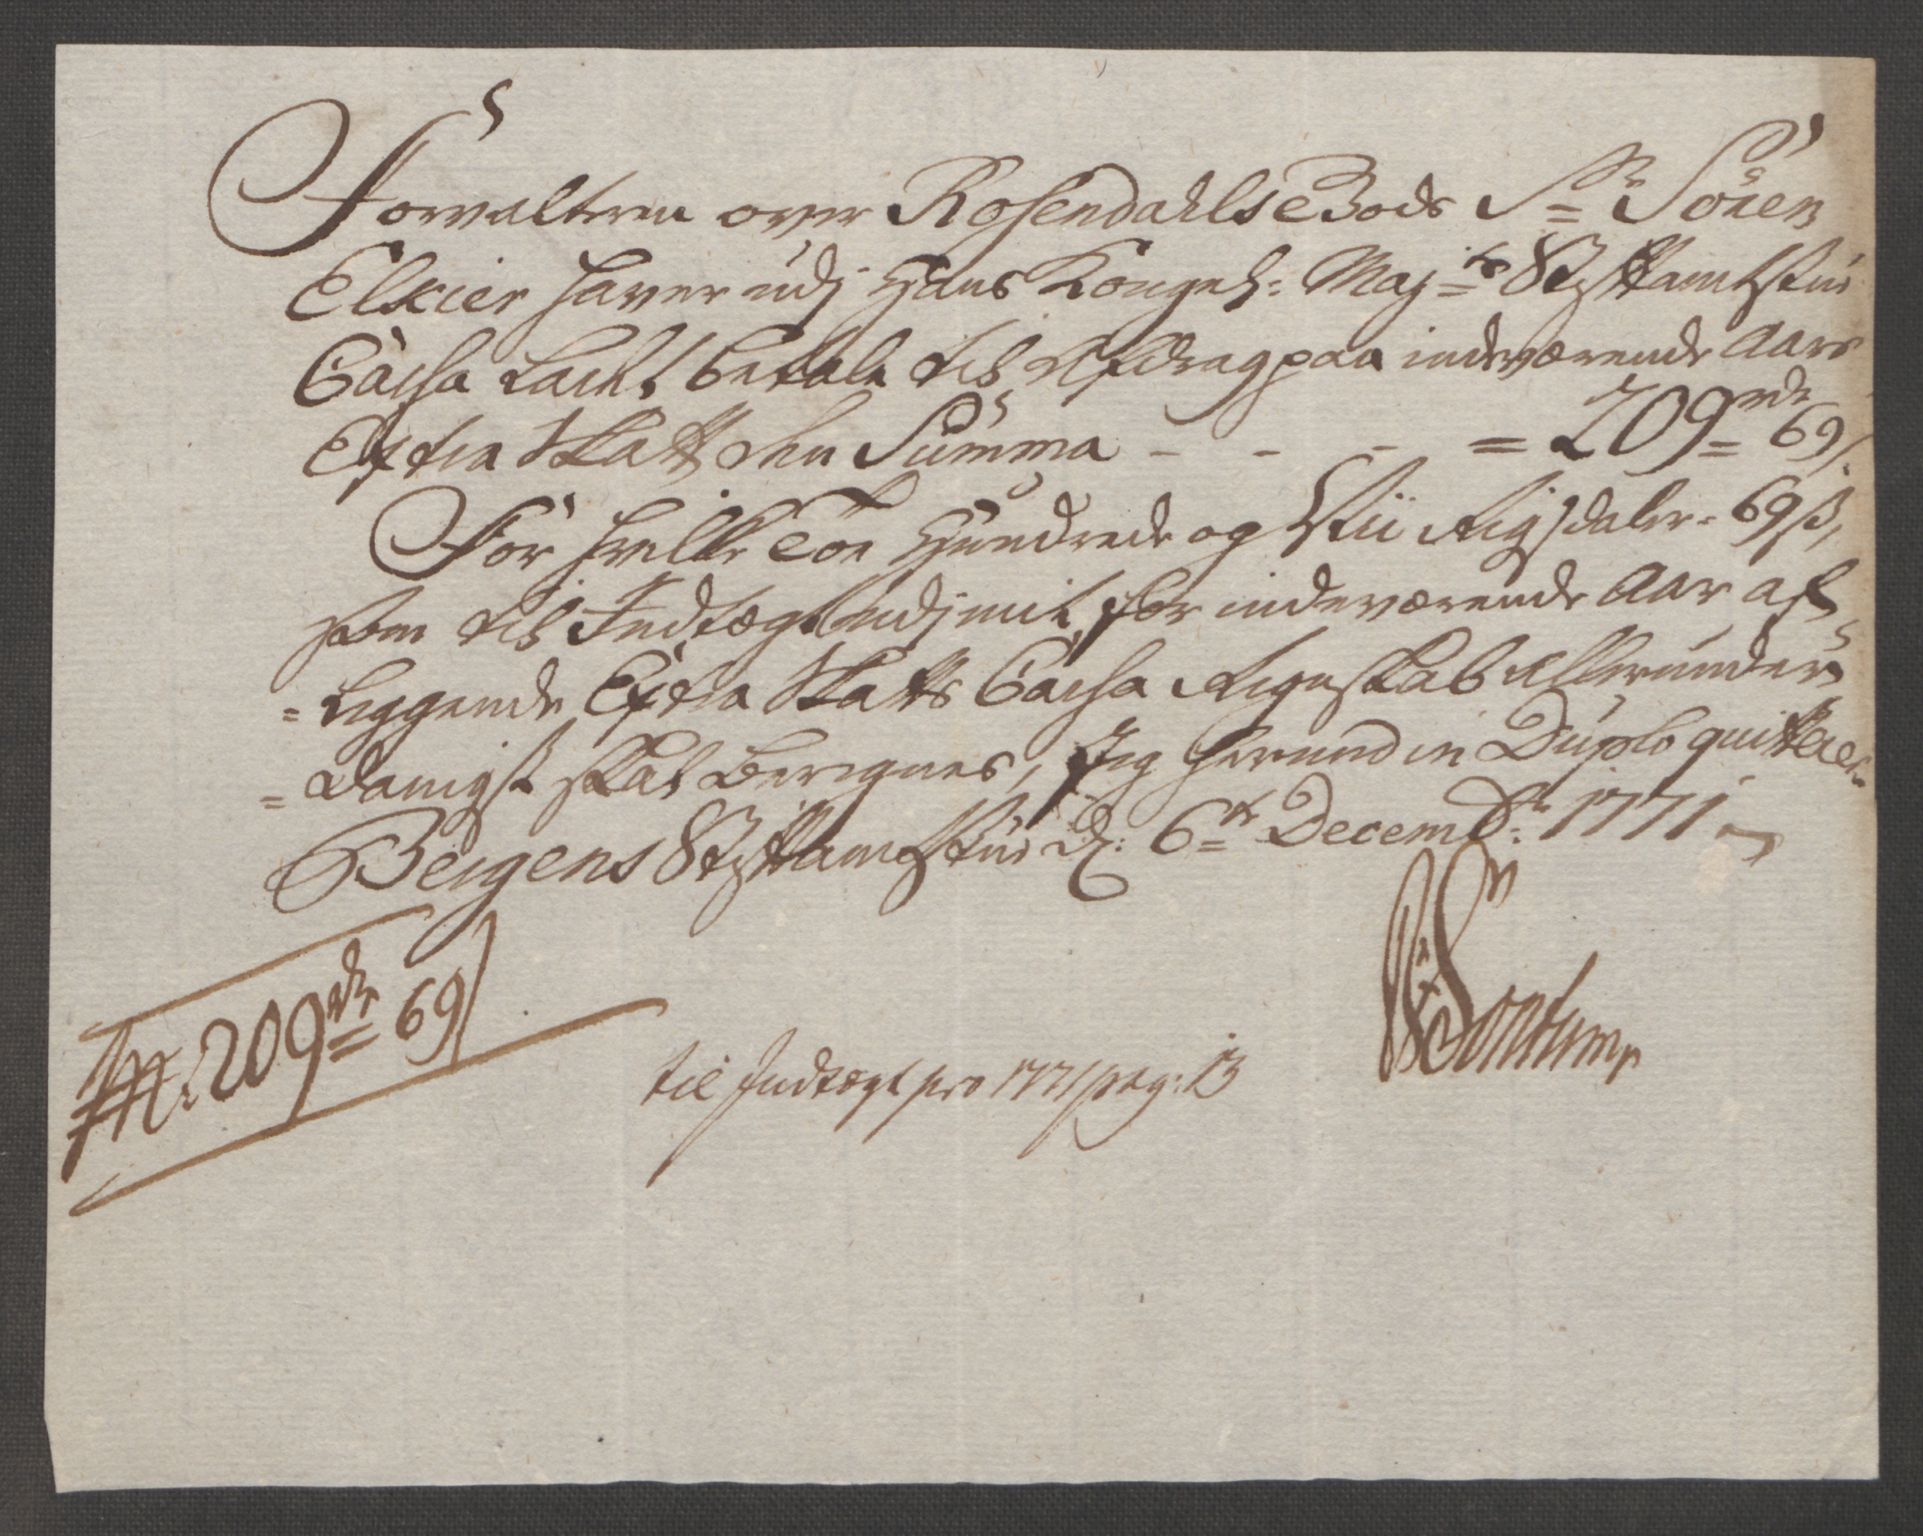 Forvalteren over Rosendahls Gods Sr= Sören
Elkier haver udj Hans Kongel: Maj=ts Stiftamtstue
Cassa Ladet betale til Afdrag paa indeværende Aars
Extra Skatt den Summa - - - = 209=rdr 69 s
For hvilke Toe Hundrede og Nii Rigsdaler 69 s,
som til Indtægt udj mit for indeværende Aar af-
=Læggende Extra Skatts Cassa Regnskab Allerunder-
=danigst skal Beregnes, Jeg herved in Duplo quitterer.
Bergens Stiftamtstue d: 6=te Decembr: 1771
Sontum
209=rdr 69
til Indtægt pro 1771 pag: 13